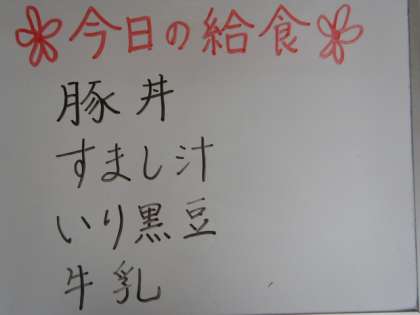 今日の給食
豚丼
すまし汁
いり黒豆
牛乳